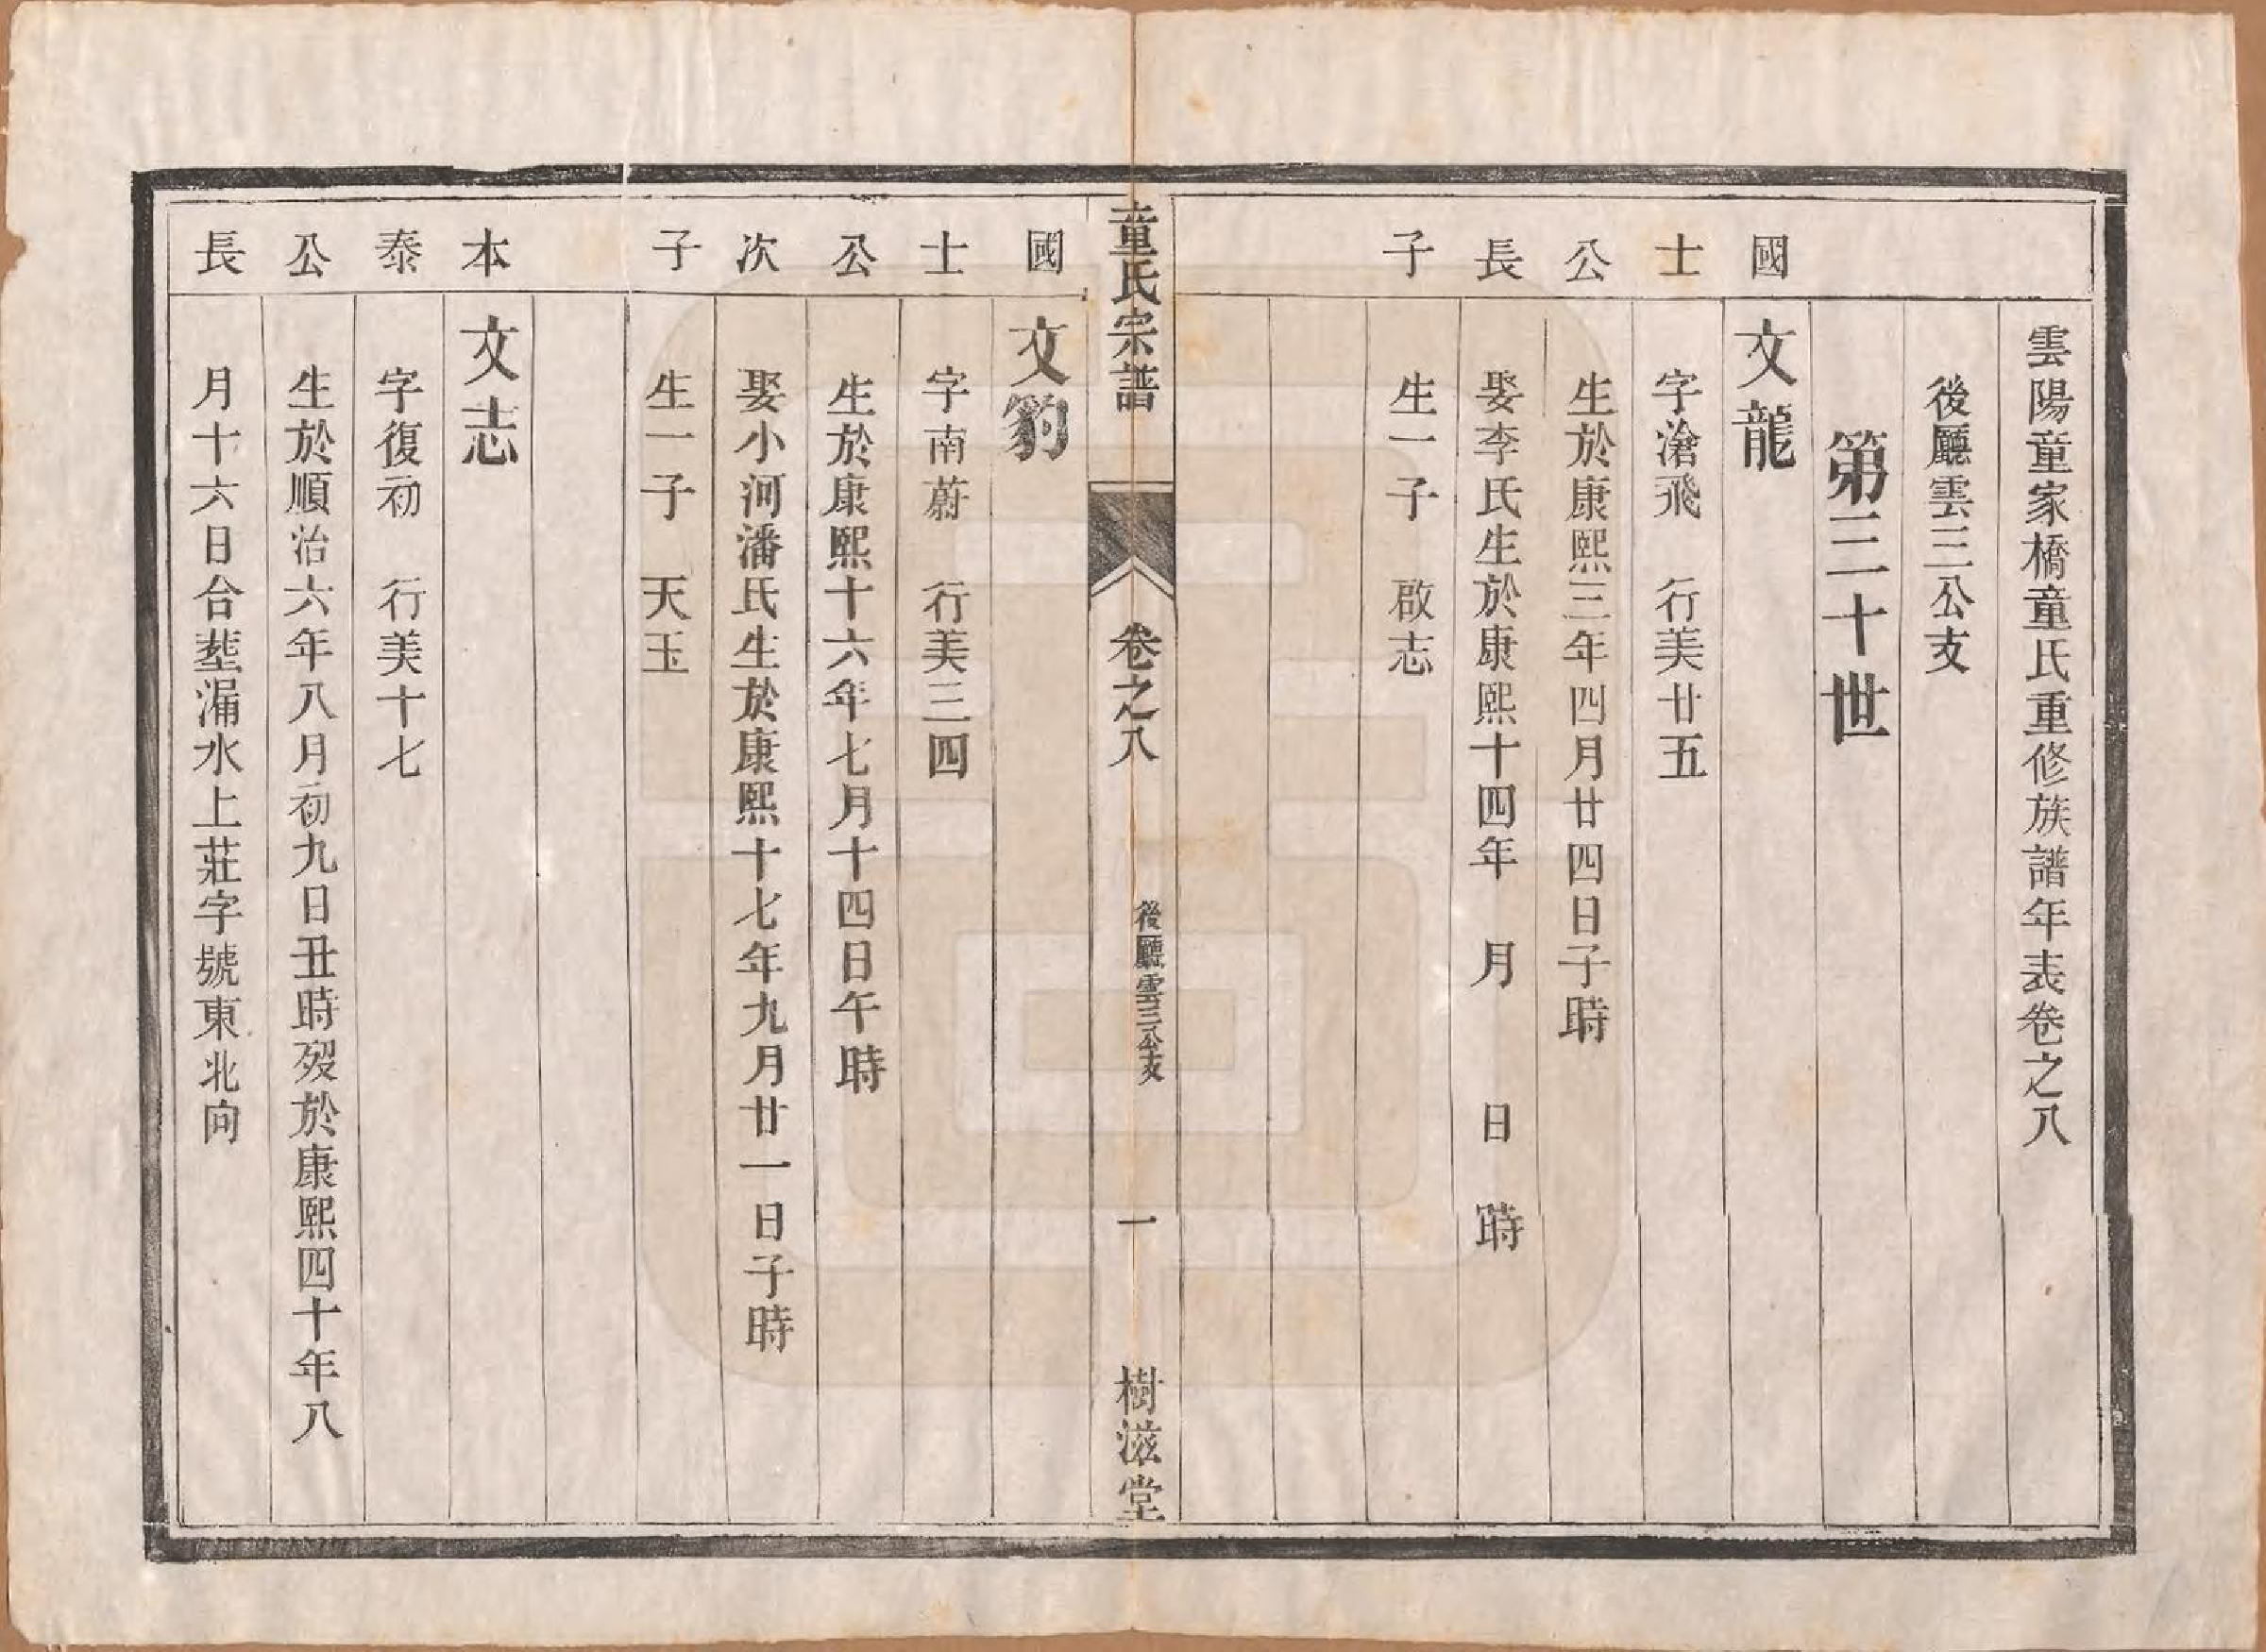 雲陽童家橋童氏重修族譜年表卷之八
後廳雲三公支
第三十世
國士公長子
文龍
字滄飛 行美廿五
生於康熙三年四月廿四日子時
娶李氏生於康熙十四年 月 日 時
生一子 啟志
童氏宗譜 卷之八 後廳雲三公支 一 樹滋堂
國士公次子
文豹
字南蔚 行美三四
生於康熙十六年七月十四日午時
娶小河潘氏生於康熙十七年九月廿一日子時
生一子 天玉
本泰公長
文志
字復初 行美十七
生於順治六年八月初九日丑時歿於康熙四十年八
月十六日合塟漏水上莊字號東北向